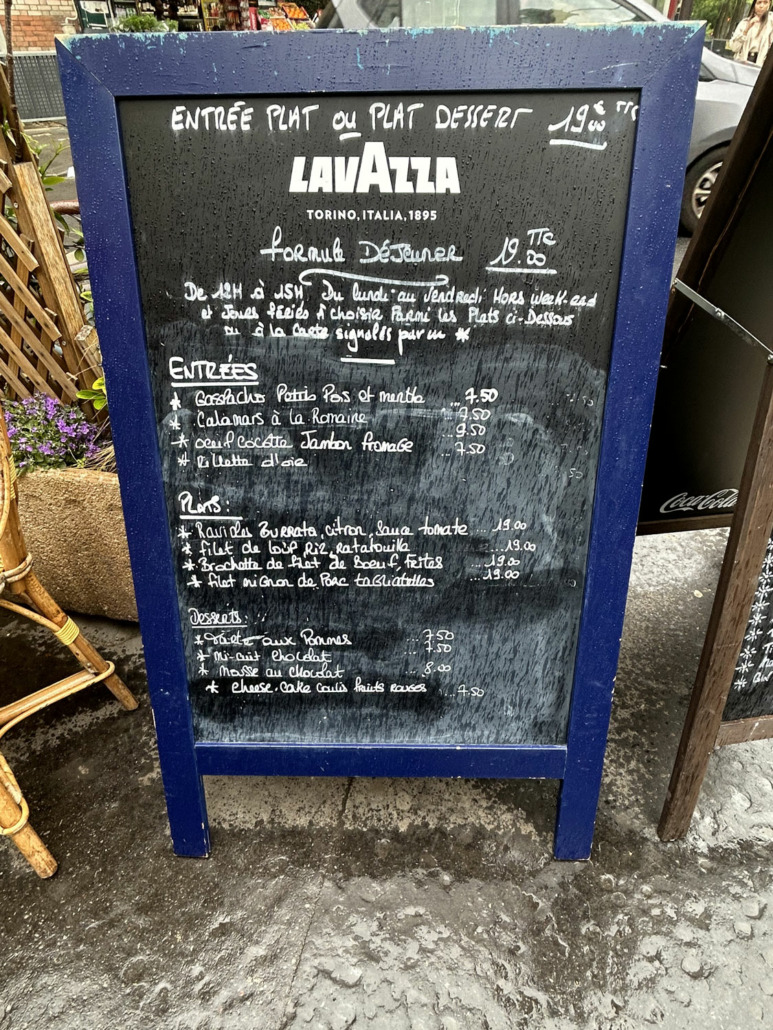 ENTRÉE PLAT OU PLAT DESSERT 19€00 TTC
LAVAZZA
TORINO, ITALIA, 1895
formule DÉJeuner 19.00 TTC
De 12H à 15H, Du lundi au Vendredi HORS Week-end
et Jours fériés à choisir Parmi les Plats ci-Dessous
ou à la carte signalés par un *
ENTRÉES
* Gaspacho Petits Pois et menthe ... 7.50
* Calamars à la Romaine ... 9.50
* oeuf cocotte Jambon fromage ... 9.50
* Rillette d'oie ... 7.50
Plats:
* Ravioles Burrata, citron, sauce tomate ... 19.00
* filet de loup Riz, ratatouille ... 19.00
* Brochette de filet de Boeuf, frites ... 19.00
* filet mignon de Porc tagliatelles ... 19.00
Desserts:
* tarte aux Pommes ... 7.50
* mi-cuit chocolat 7.50
* mousse au chocolat ... 8.00
* cheese-cake coulis fruits rouges ... 7.50
Coca-Cola